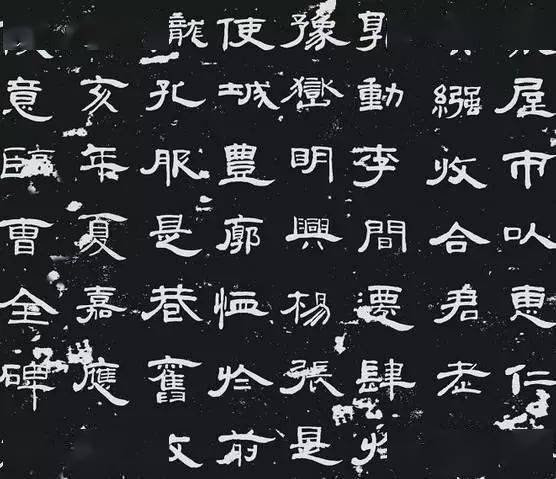 屋市以惠仁
收合君老
動李間遷肆
豫嶽明興楊張是
使城豊廓恤於前
龍孔服是巷舊文
亥年夏嘉應
意臨曹全碑